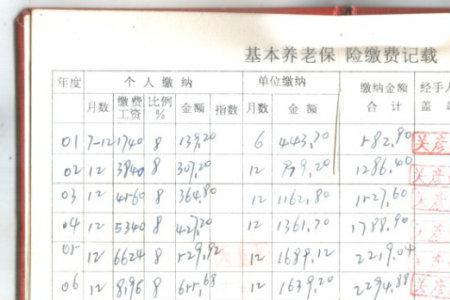 基本养老保 险缴费记载
年度 个人缴纳 单位缴纳 缴纳金额合计 经手人盖
月数 缴费工资 比例% 金额 指数 月数 金额
01 7-12 1740 8 139,20 6 443,70 582,90
02 12 3840 8 307,20 12 979,20 1286,40
03 12 4560 8 364,80 12 1162,80 1527,60
04 12 5340 8 427,20 12 1361,70 1788,90
05 12 6624 8 529,92 12 1689,12 2219,04
06 12 8196 8 655,68 12 1639,20 2294,88